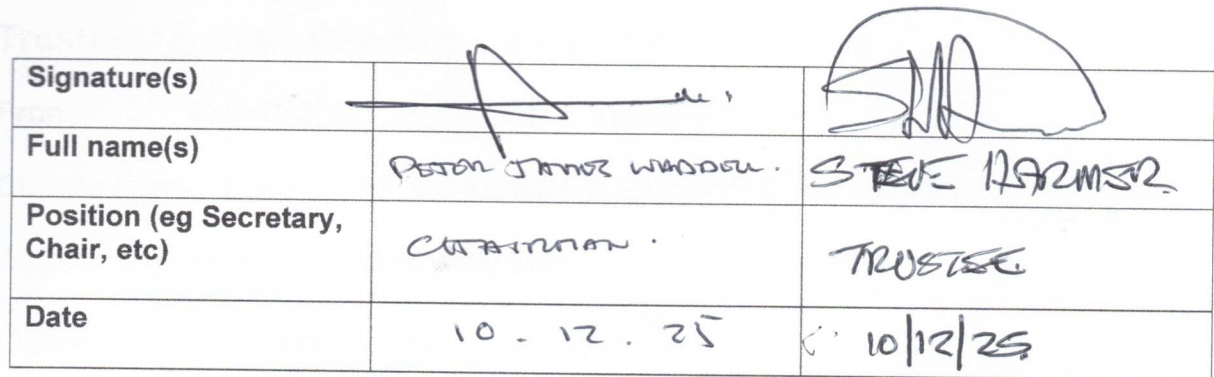 Signature(s)
Full name(s) PETER JAMES WADDELL. STEVE HARMER
Position (eg Secretary,
Chair, etc) CHAIRMAN. TRUSTEE
Date 10.12.25 10/12/25